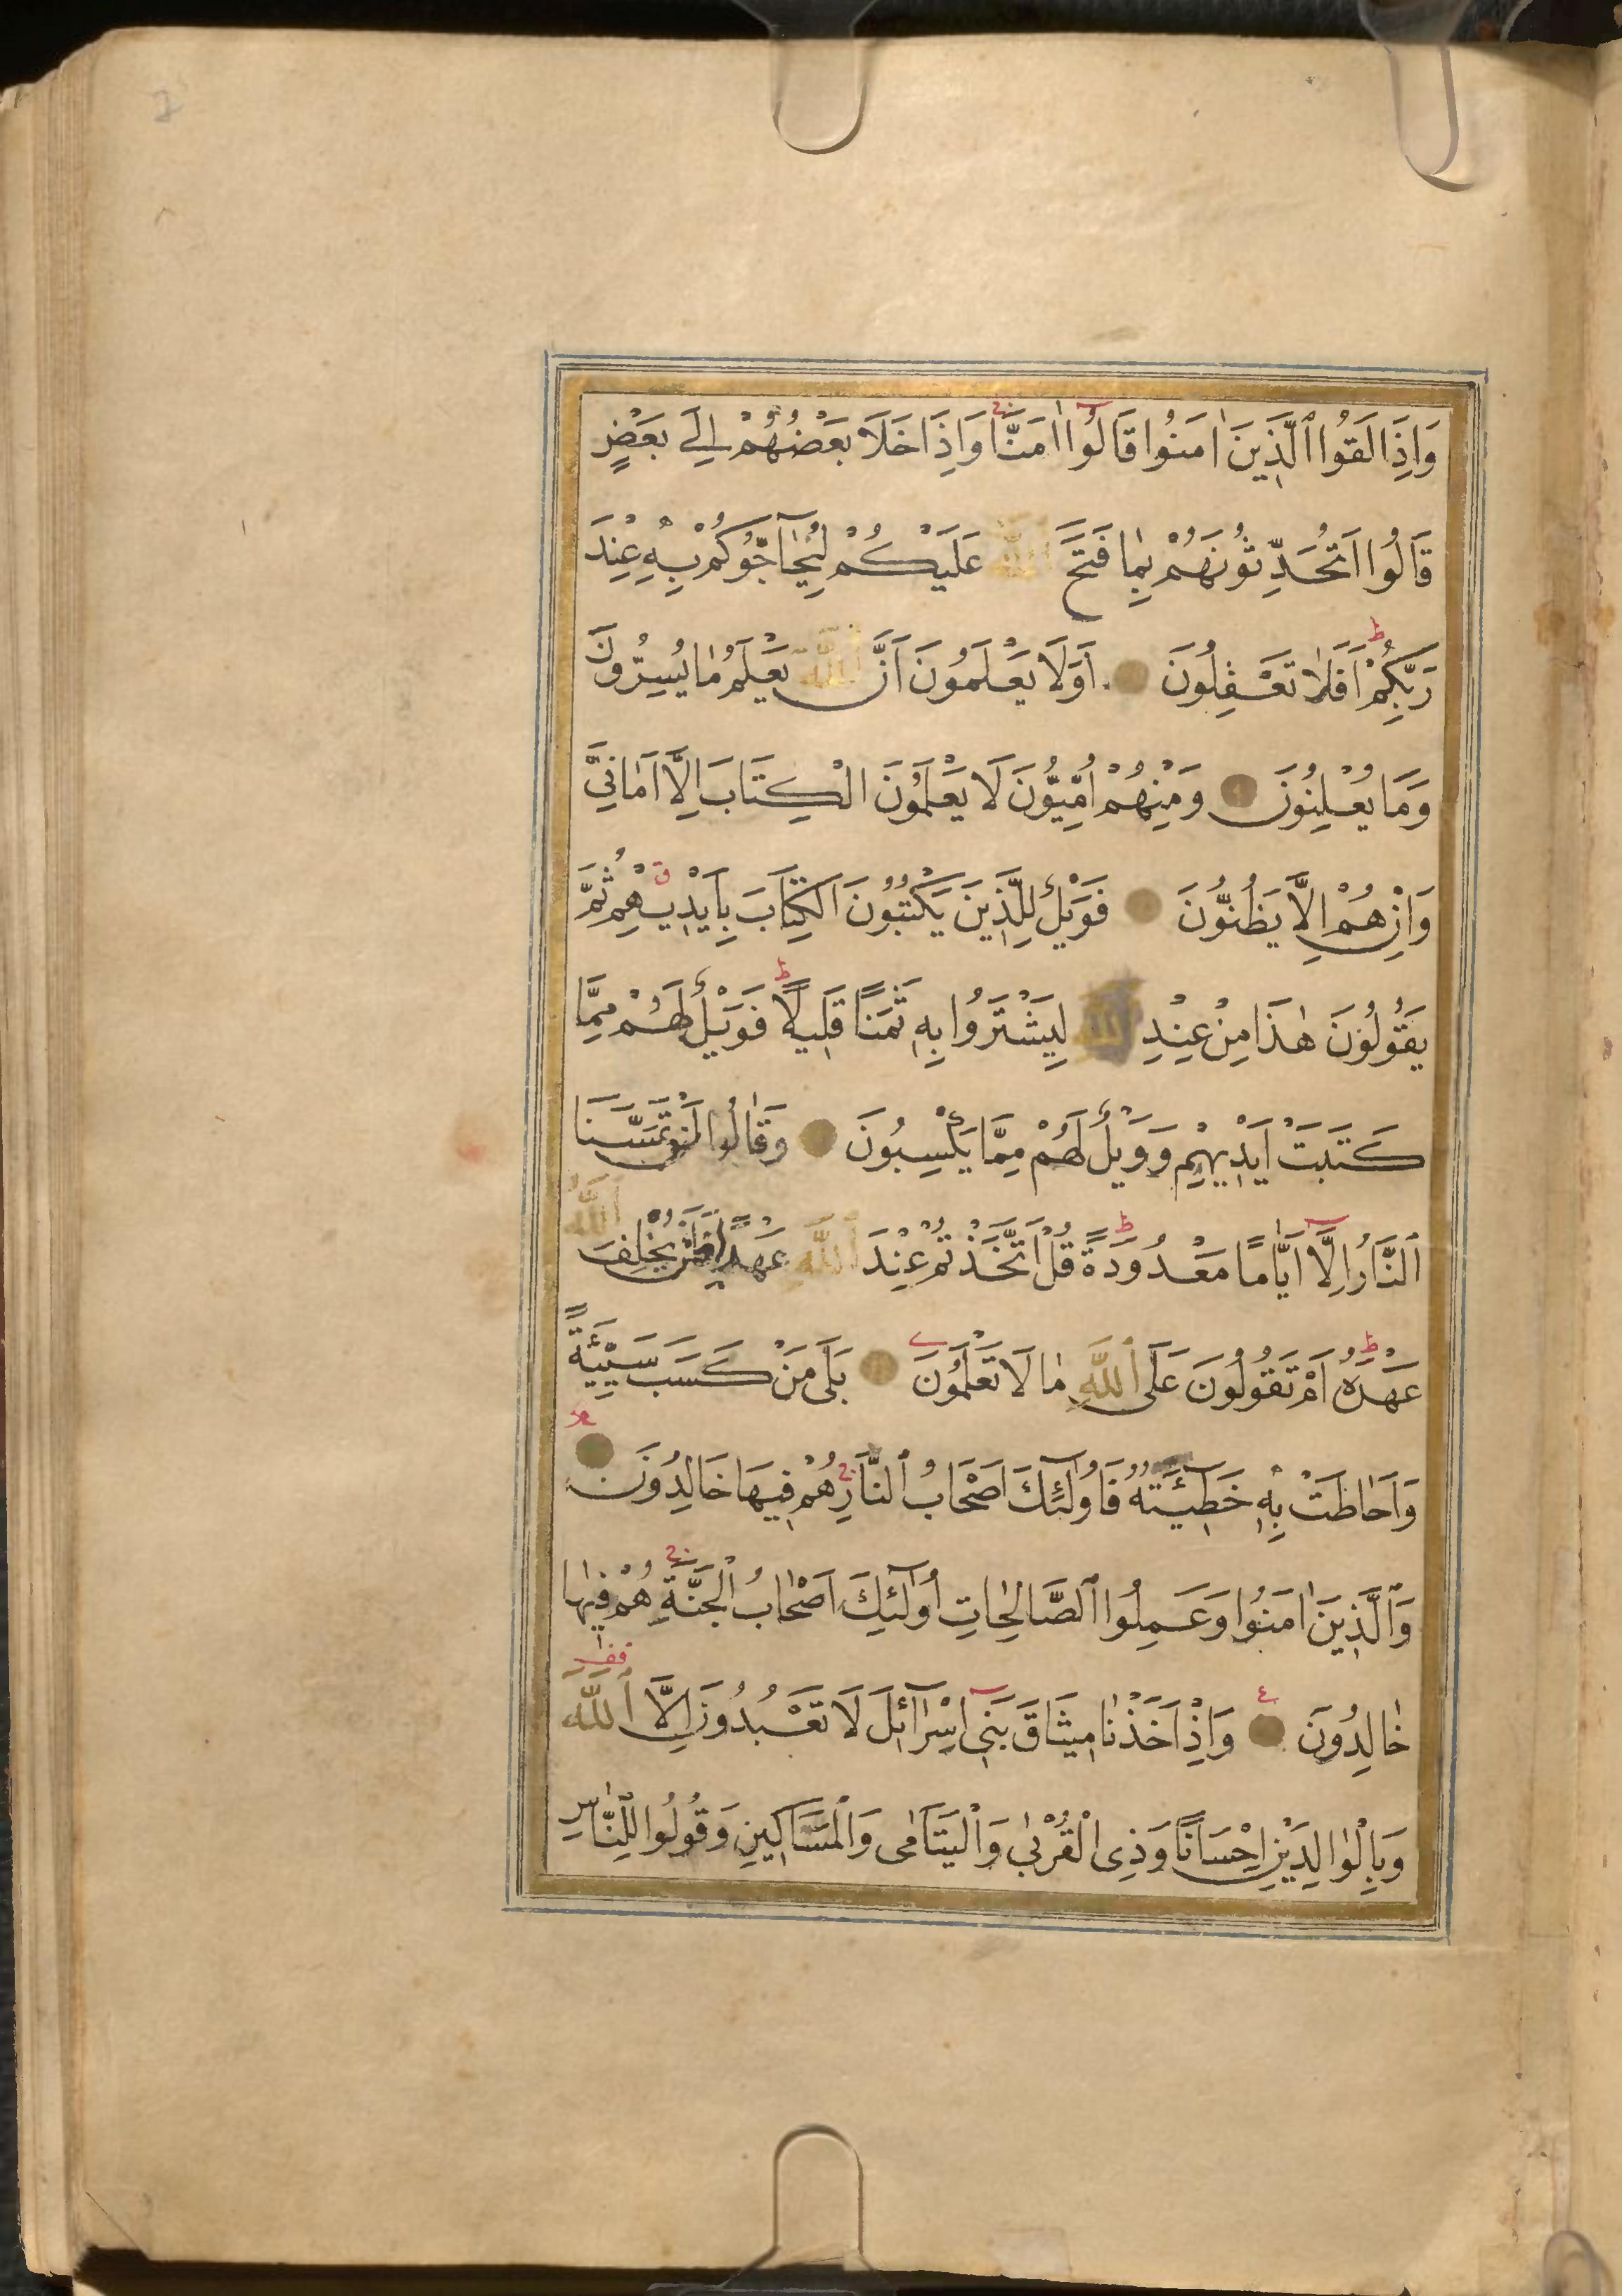 وَاِذَا لَقُوا الَّذِينَ اٰمَنُوا قَالُوا اٰمَنَّا وَاِذَا خَلَا بَعْضُهُمْ اِلٰى بَعْضٍ
قَالُوا اَتُحَدِّثُونَهُمْ بِمَا فَتَحَ اللّٰهُ عَلَيْكُمْ لِيُحَاجُّوكُمْ بِهِ عِنْدَ
رَبِّكُمْ اَفَلَا تَعْقِلُونَ اَوَلَا يَعْلَمُونَ اَنَّ اللّٰهَ يَعْلَمُ مَا يُسِرُّونَ
وَمَا يُعْلِنُونَ وَمِنْهُمْ اُمِّيُّونَ لَا يَعْلَمُونَ الْكِتَابَ اِلَّا اَمَانِيَّ
وَاِنْ هُمْ اِلَّا يَظُنُّونَ فَوَيْلٌ لِلَّذِينَ يَكْتُبُونَ الْكِتَابَ بِاَيْدِيهِمْ ثُمَّ
يَقُولُونَ هٰذَا مِنْ عِنْدِ اللّٰهِ لِيَشْتَرُوا بِهِ ثَمَنًا قَلِيلًا فَوَيْلٌ لَهُمْ مِمَّا
كَتَبَتْ اَيْدِيهِمْ وَوَيْلٌ لَهُمْ مِمَّا يَكْسِبُونَ وَقَالُوا لَنْ تَمَسَّنَا
النَّارُ اِلَّا اَيَّامًا مَعْدُودَةً قُلْ اَتَّخَذْتُمْ عِنْدَ اللّٰهِ عَهْدًا فَلَنْ يُخْلِفَ اللّٰهُ
عَهْدَهُ اَمْ تَقُولُونَ عَلَى اللّٰهِ مَا لَا تَعْلَمُونَ بَلٰى مَنْ كَسَبَ سَيِّئَةً
وَاَحَاطَتْ بِهِ خَطِيئَتُهُ فَاُولٰئِكَ اَصْحَابُ النَّارِ هُمْ فِيهَا خَالِدُونَ
وَالَّذِينَ اٰمَنُوا وَعَمِلُوا الصَّالِحَاتِ اُولٰئِكَ اَصْحَابُ الْجَنَّةِ هُمْ فِيهَا
خَالِدُونَ وَاِذْ اَخَذْنَا مِيثَاقَ بَنِي اِسْرَائِلَ لَا تَعْبُدُونَ اِلَّا اللّٰهَ
وَبِالْوَالِدَيْنِ اِحْسَانًا وَذِي الْقُرْبٰى وَالْيَتَامٰى وَالْمَسَاكِينِ وَقُولُوا لِلنَّاسِ